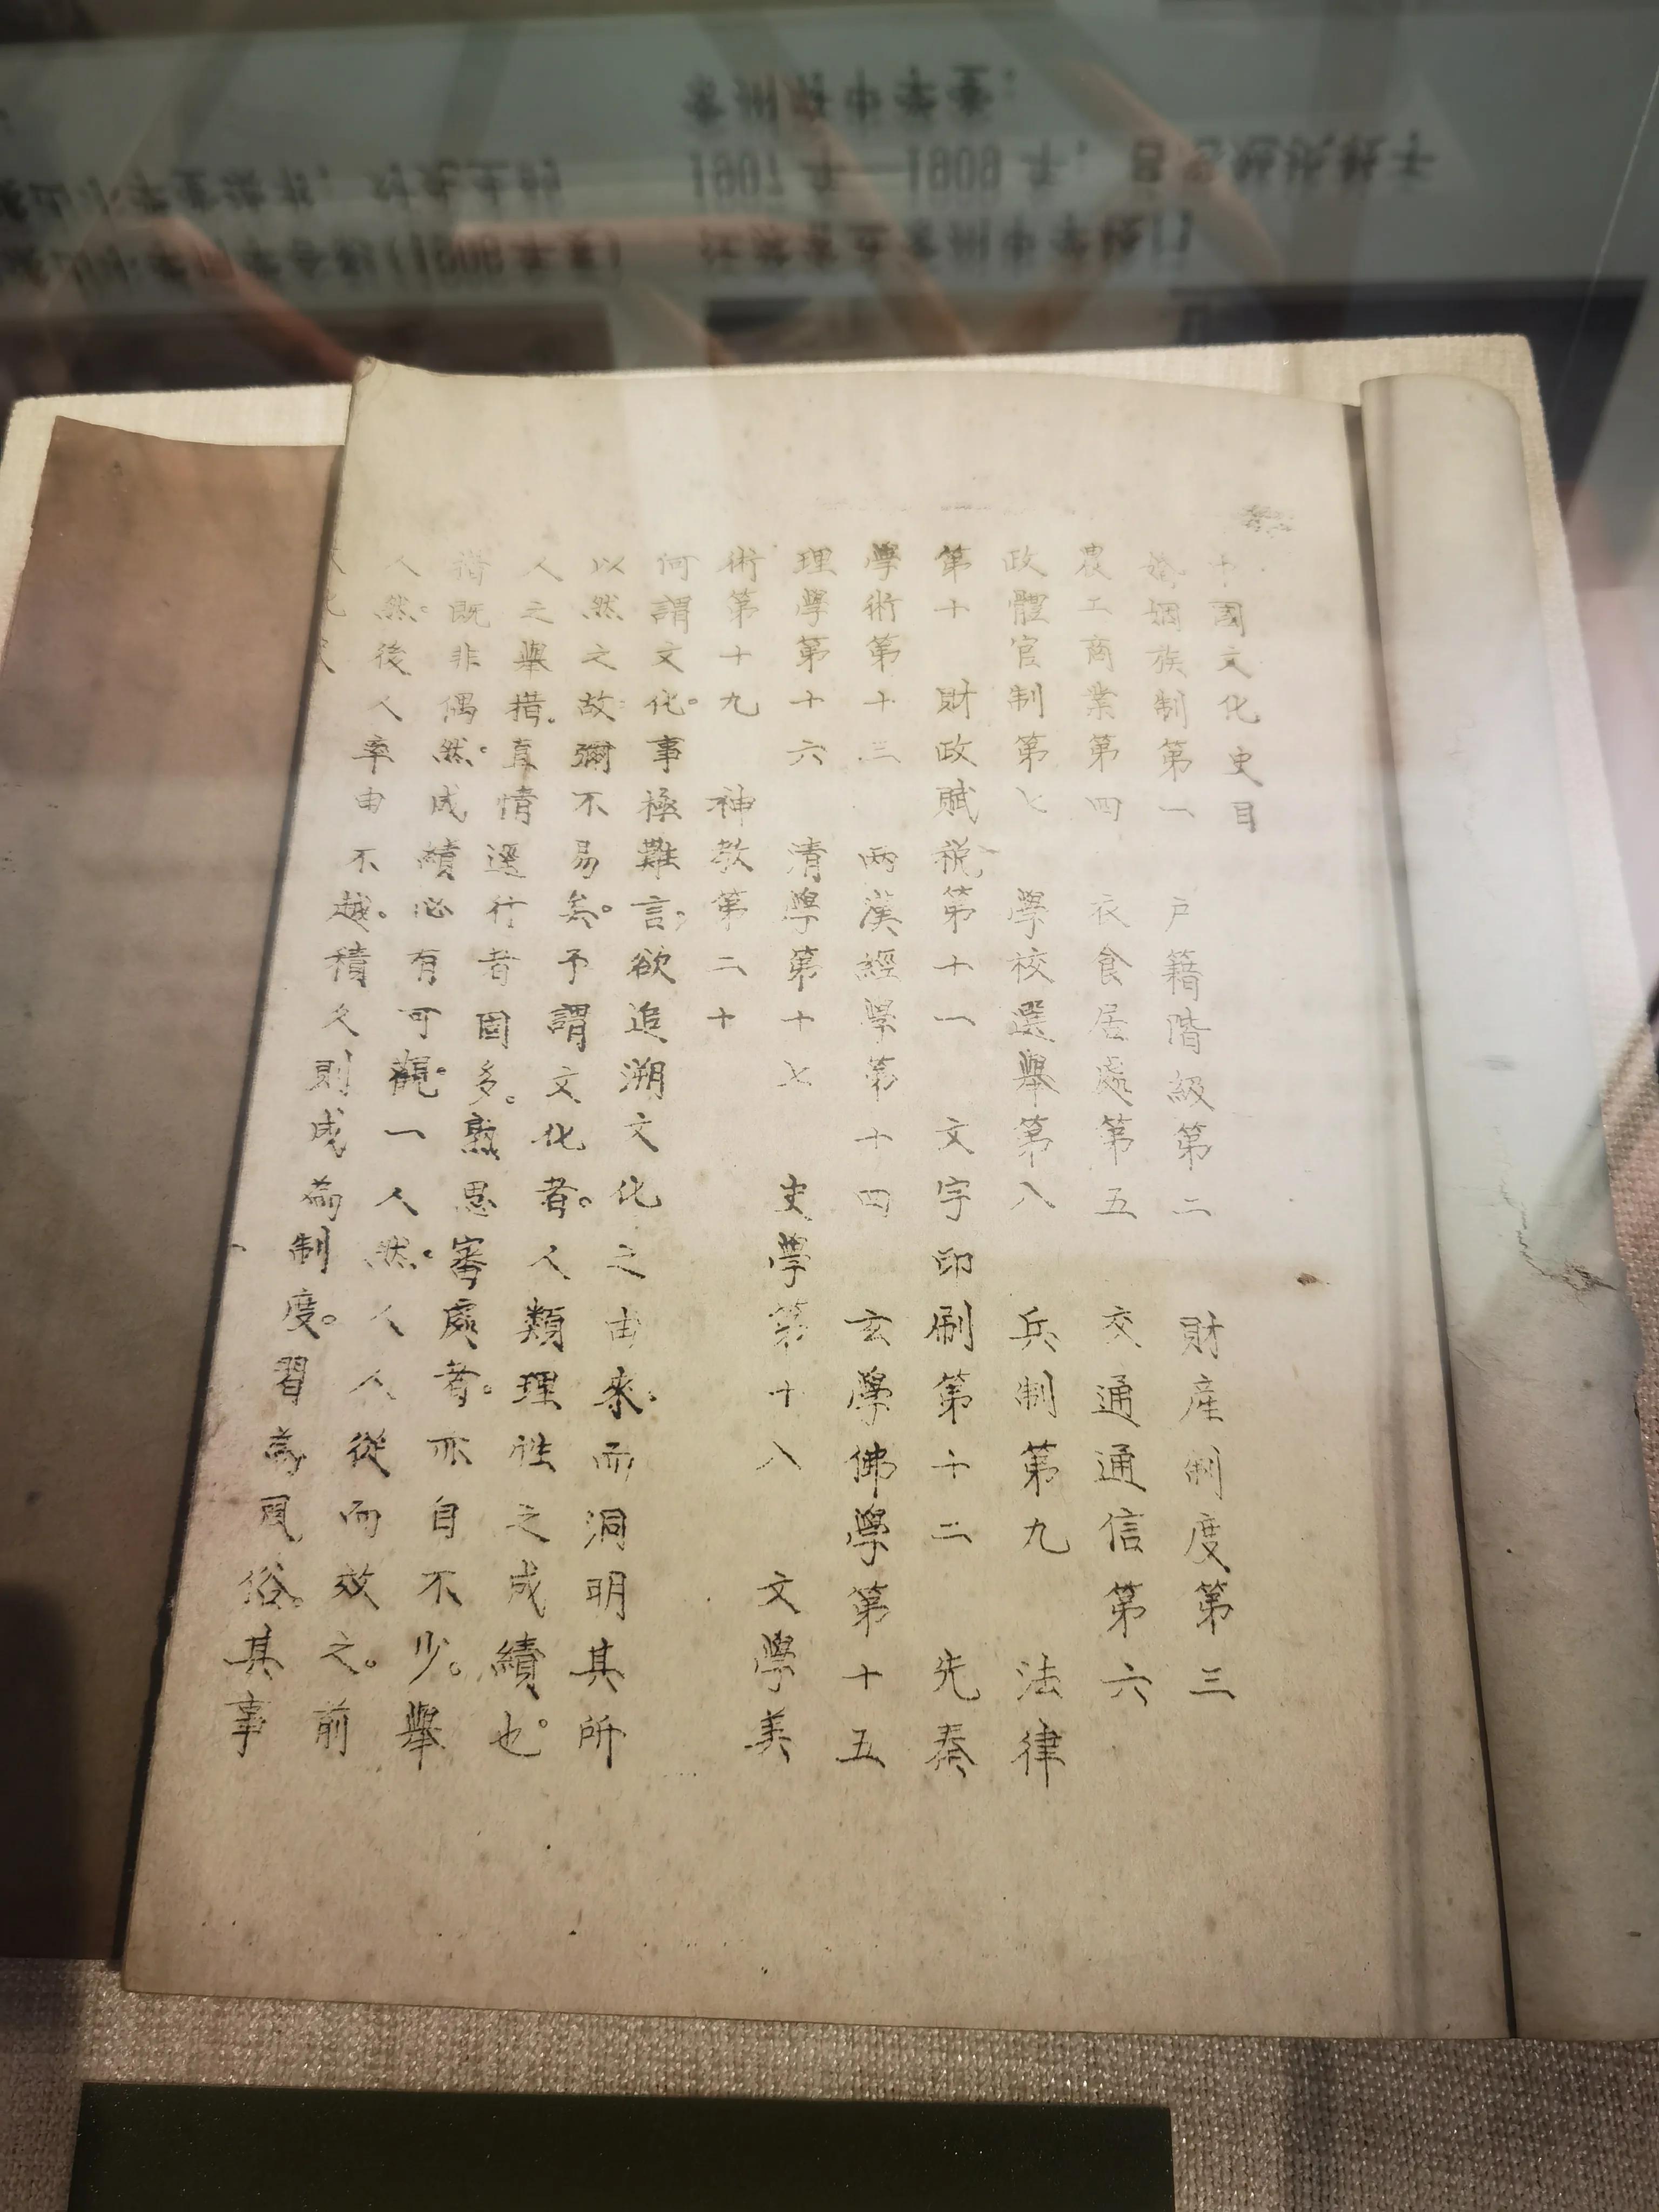 中國文化史目
婚姻族制第一 戶籍階級第二 財產制度第三
農工商業第四 衣食居處第五 交通通信第六
政體官制第七 學校選舉第八 兵制第九 法律
第十 財政賦稅第十一 文字印刷第十二 先秦
學術第十三 兩漢經學第十四 玄學佛學第十五
理學第十六 清學第十七 史學第十八 文學美
術第十九 神教第二十
何謂文化。事極難言，欲追溯文化之由來，而洞明其所
以然之故，彌不易矣。予謂文化者。人類理性之成績也。
人之舉措。直情逕行者固多。熟思審處者。亦自不少。舉
措既非偶然。成績必有可觀。一人然。人人從而效之。前
人然。後人率由不越。積久則成為制度。習為風俗。其事